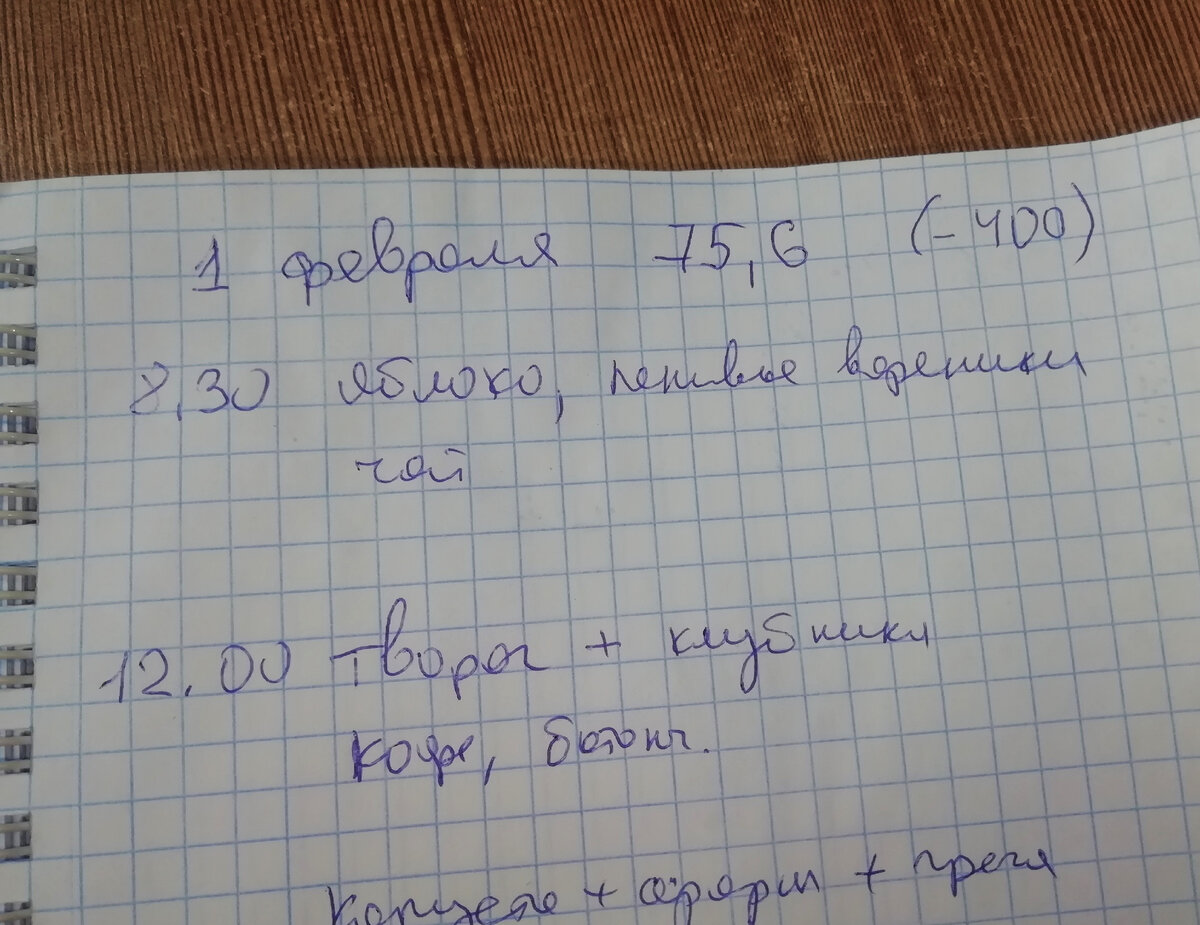 1 февраля 75,6 (-400)
8.30 яблоко, ленивые вареники
чай
12.00 творог + клубника
кофе, батонч.
Капуста + фарш + греча